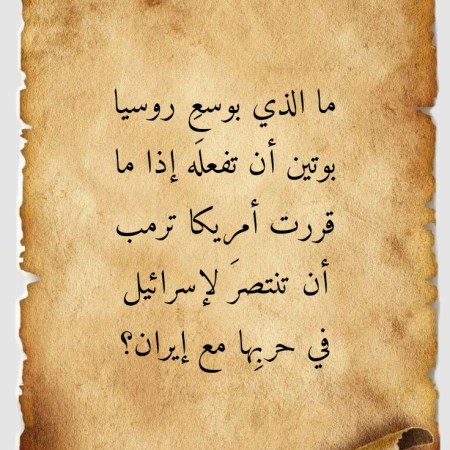 ما الذي بوسعِ روسيا
بوتين أن تفعلَه إذا ما
قررت أمريكا ترمب
أن تنتصرَ لإسرائيل
في حربِها مع إيران؟